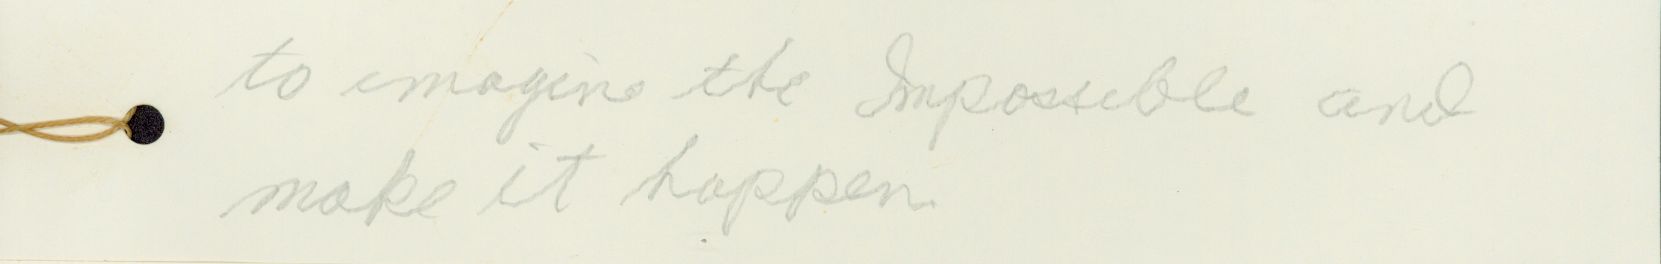 to imagine the Impossible and
make it happen.